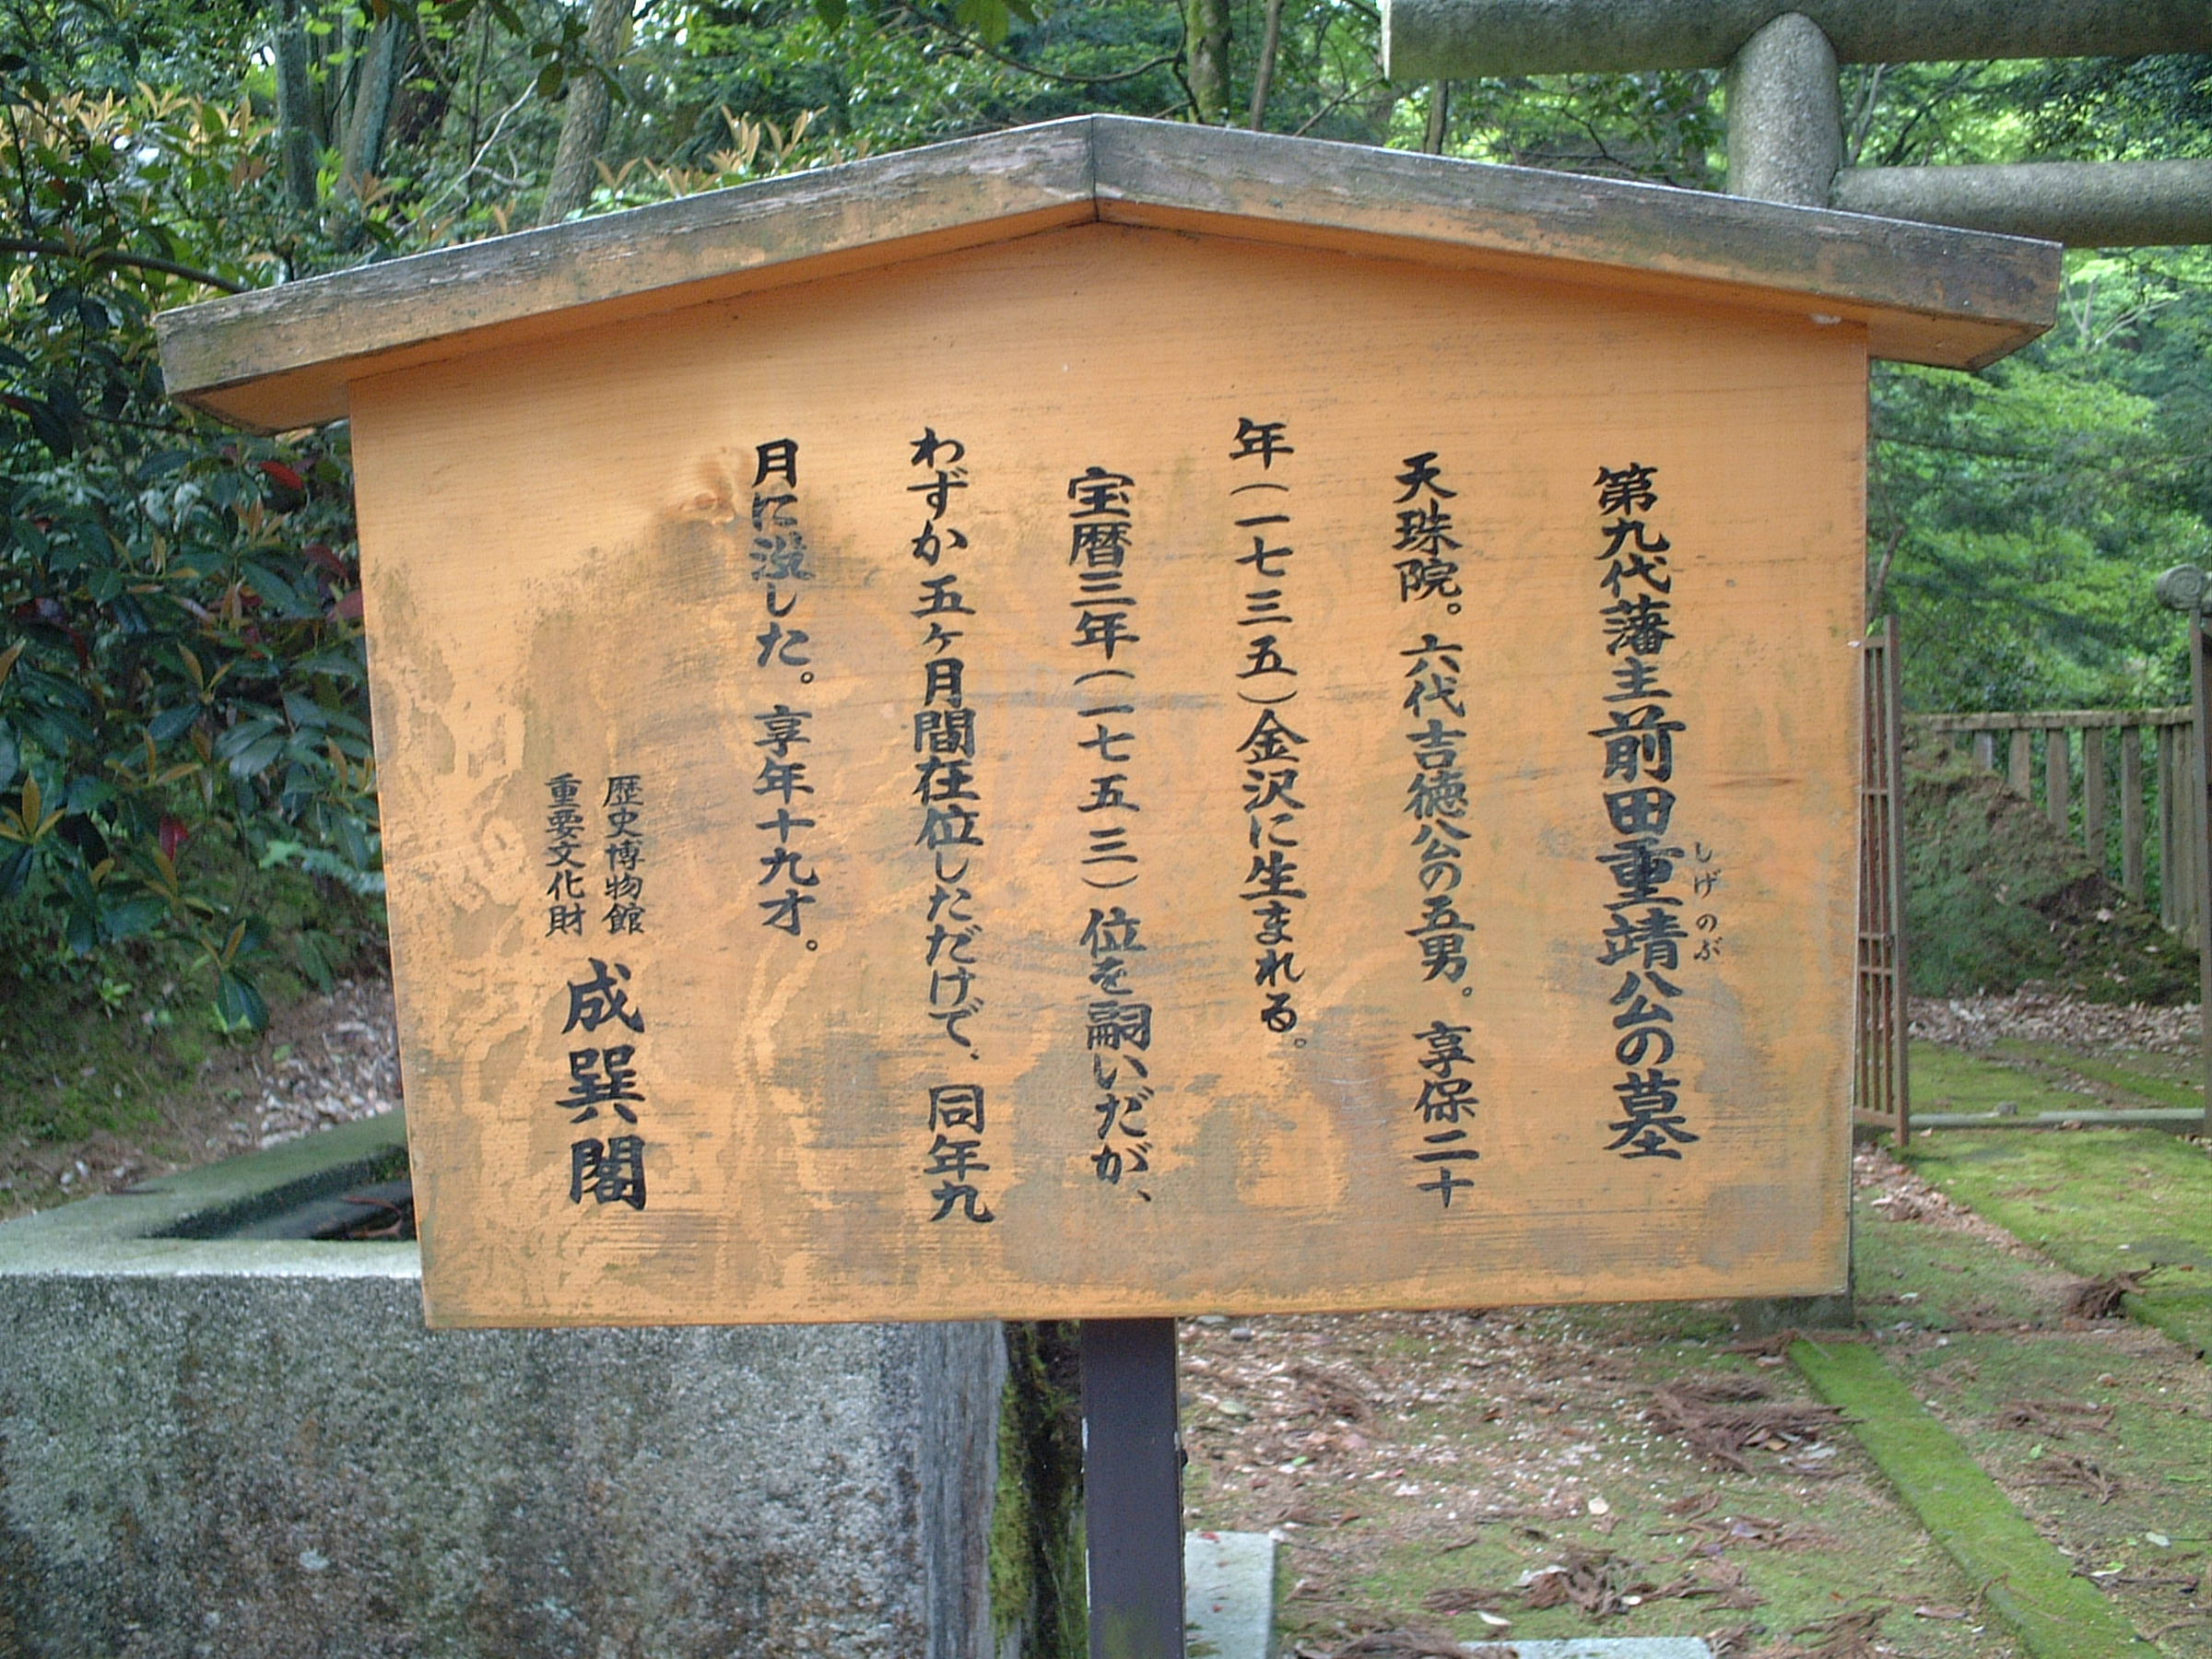 第九代藩主前田重靖公の墓
しげのぶ
天珠院。六代吉徳公の五男。享保二十
年(一七三五)金沢に生まれる。
宝暦三年(一七五三)位を嗣いだが、
わずか五ヶ月間在位しただけで、同年九
月に没した。享年十九才。
歴史博物館
重要文化財
成巽閣